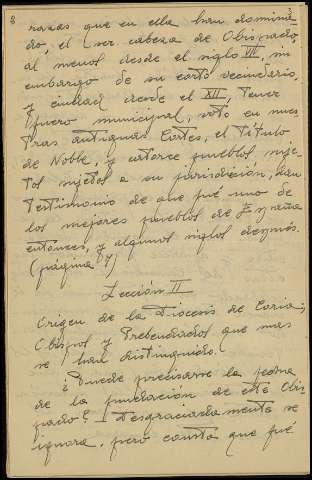 8
razas que en ella han domina-
do, el ser cabeza de Obispado,
al menos desde el siglo VII, sin
embargo de su corto vecindario,
y ciudad desde el XII, tener
fuero municipal, voto en nues-
tras antiguas Cortes, el Título
de Noble, y catorce pueblos suje-
tos sujetos a su jurisdicción, dan
testimonio de que fué uno de
los mejores pueblos de España
entonces, y algunos siglos después.
(página 7)
Lección II
Origen de la Diócesis de Coria;
Obispos y Prebendados que mas
se han distinguido.
¿Puede precisarse la fecha
de la fundación de este Obis-
pado? - Desgraciadamente se
ignora, pero consta que fué